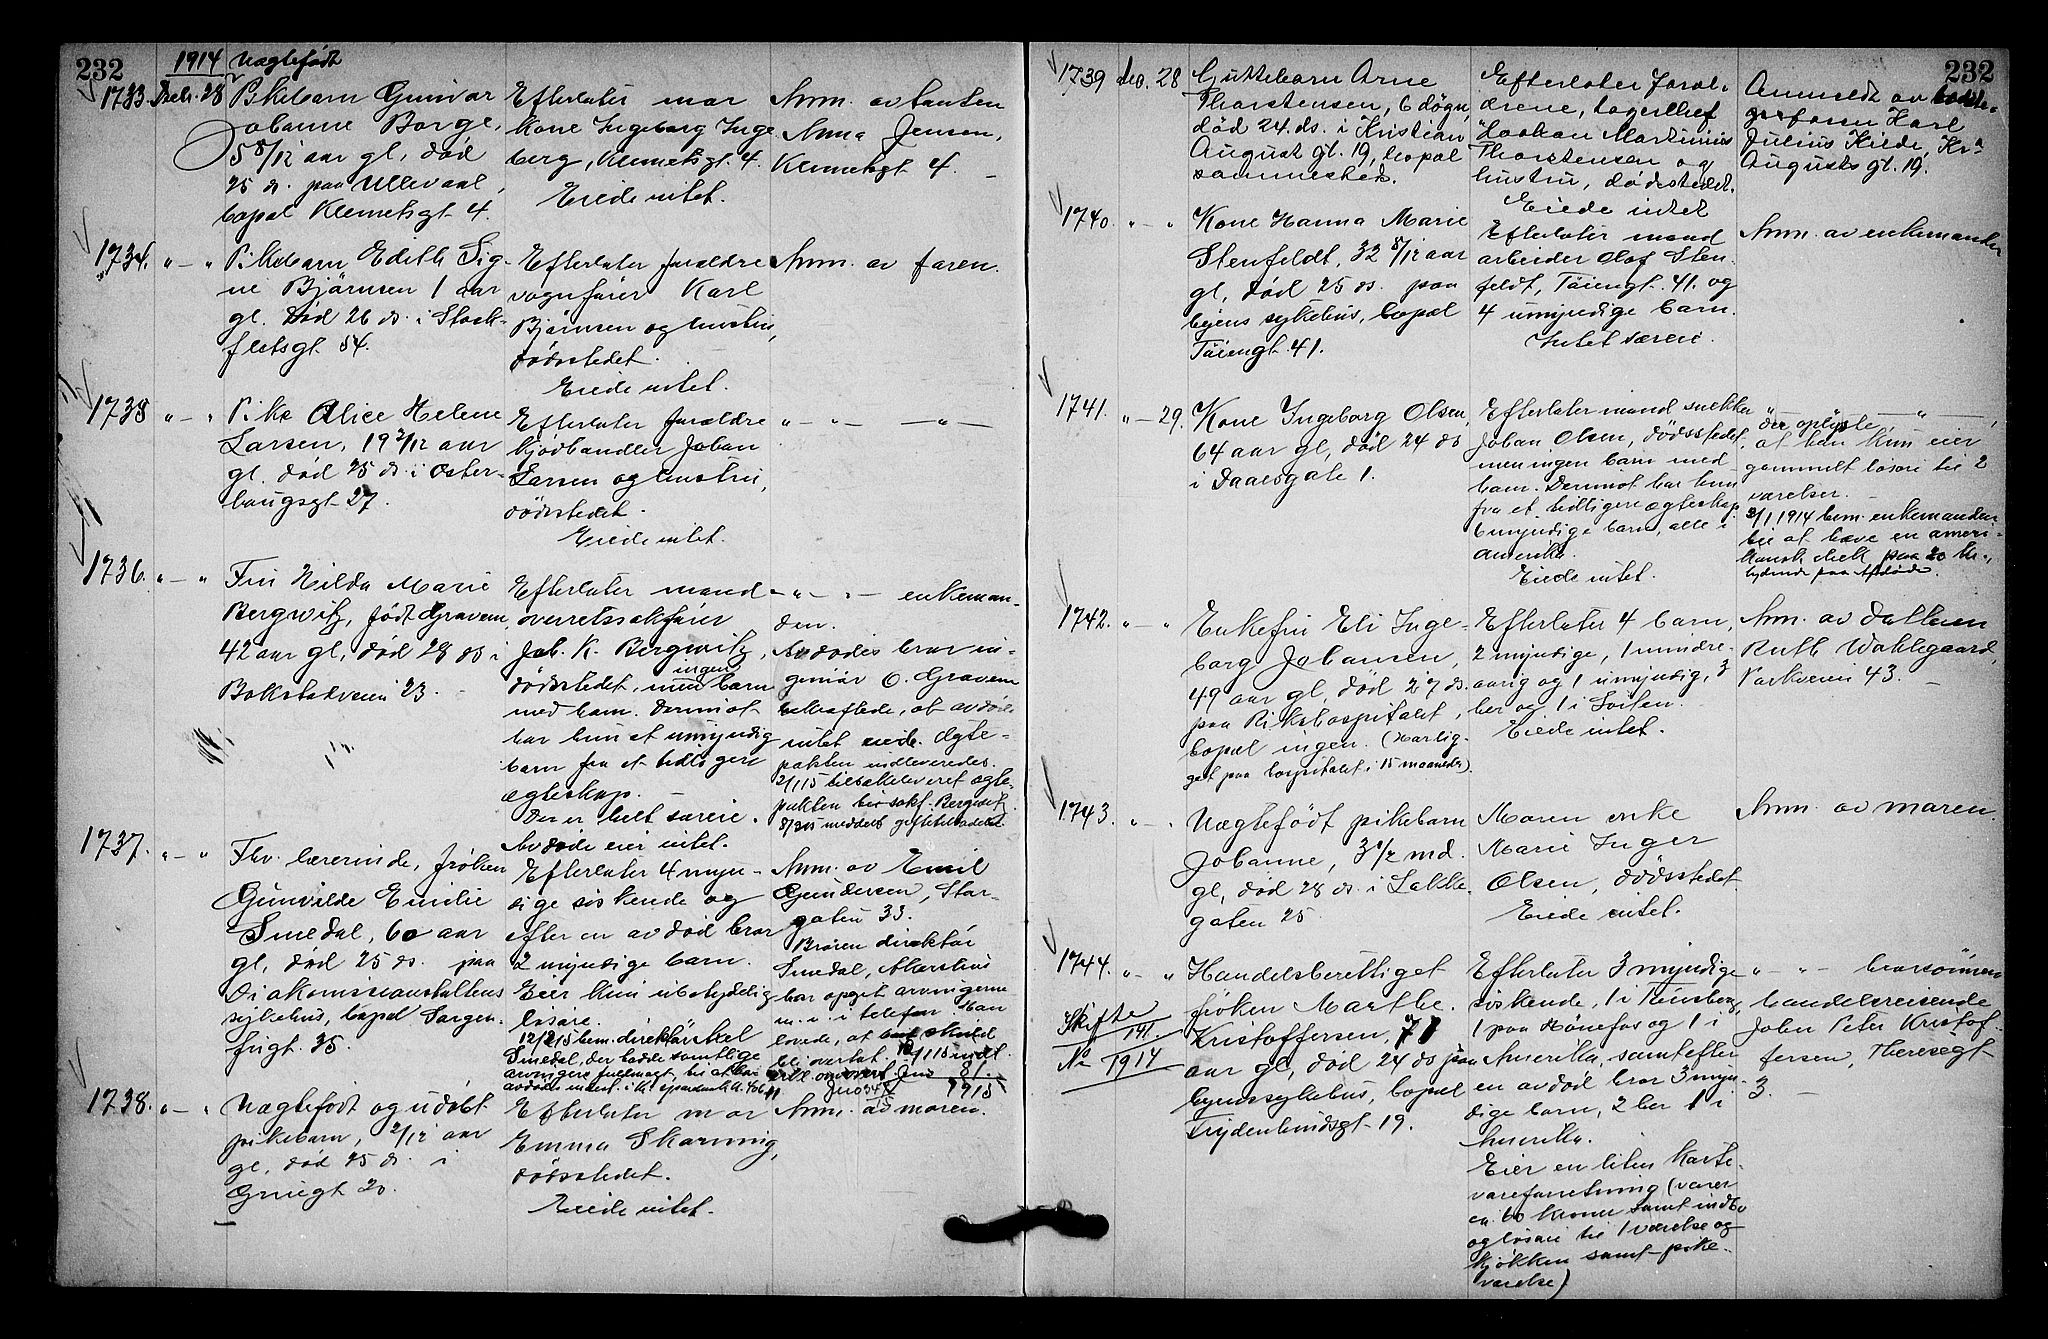 232
1914 Uægtefødt
1733. Decb. 28 Pikebarn Gunvor
Johanne Borge,
5 8/12 aar gl, død
25 ds. paa Ullevaal,
bopæl Klemetsgt. 4.
Efterlater mor
Kone Ingeborg Inge
berg, Klemetsgt. 4.
Eiede intet.
Anm. av tanten
Anna Jensen,
Klemetsgt 4. –
1734. " – " Pikebarn Edith Sig-
ne Bjørnsen 1 aar
gl. død 26 ds. i Stock-
fletsgt. 54.
Efterlater forældre
vognfører Karl
Bjørnsen og hustru,
dødsstedet.
Eiede intet.
Anm. av faren.
1735 " – " Pike Alice Helene
Larsen, 19 2/12 aar
gl. død 25 ds. i Øster-
haugsgt 27.
Efterlater forældre
kjødhandler Johan
Larsen og hustru,
dødsstedet.
Eiede intet.
" – " – – " –
1736. " – " Fru Hilda Marie
Bergwitz, født Gravem
42 aar gl, død 28 ds i
Bokstadveien 23.
Efterlater mand
overretssakfører
Joh. K. Bergwitz,
dødsstedet, men ingen barn
med ham. Derimot
har hun et umyndig
barn fra et tidligere
egteskap.
Der er helt særeie.
Avdøde eier intet.
– " – " – enkeman-
den.
Avdødes bror in-
geniør O. Gravem
bekræftede, at avdøde
intet eiede. Ægte-
pakten indleveredes.
2/1 15 tilbakeleveret ægte-
pakten til sakf. Bergwitz.
1737. " – " Fhv. lærerinde, frøken
Gunvilde Emilie
Smedal, 60 aar
gl, død 25 ds. paa
Diakonisseanstaltens
sykehus, bopæl Sorgen-
frigt. 35.
Efterlater 4 myn-
dige søskende og
efter en av død bror
2 myndige barn.
Eier kun ubetydelig
løsøre.
12/2 15 bem. direktør Axel
Smedal, der hadde samtlige
arvingers fuldmagt,
Anm. av Emil
Gundersen, Stor-
gaten 33.
Broren direktør
Smedal, Akershus
har opget arvingerne
m. v. i telefon. Han
lovede, at
bli overtat.
Jno 81.
1915
1738. " – " Uægtefødt og udøbt
pikebarn, 2/12 aar
gl, død 25 ds. i
Griegt 20.
Efterlater mor
Emma Skarning,
dødsstedet.
Eiede intet.
Anm. av moren.
232
1739 deo. 28 Guttebarn Arne
Thorstensen, 6 døgn,
død 24. ds. i Kristian
August gt. 19, bopæl
sammesteds.
Efterlater foræl-
drene, lagerchef
Haakon Martinius
Thorstensen og
hustru, dødsstedet.
Eiede intet
Anmeldt av
Julius Kilde, Kr.
Augusts gt. 19.
1740. " – " Kone Hanna Marie
Stenfeldt, 32 8/12 aar
gl, død 25 ds. paa
byens sykehus, bopæl
Tøiengt. 41.
Efterlater mand
arbeider Olaf Sten-
feldt, Tøiengt. 41. og
4 umyndige barn.
Intet særeie.
Anm. av enkemanden
1741. " – 29. Kone Ingeborg Olsen,
64 aar gl, død 24 ds
i Daaesgate 1.
Efterlater mand snekker
Johan Olsen, dødsstedet,
men ingen barn med
ham. Derimot har hun
fra et tidligere egteskap
6 myndige barn, alle i
Amerika.
Eiede intet.
" – – " –
der oplyste,
at han kun eier
gammelt løsøre til 2
værelser.
3/1 1914 bem. enkemanden
til at hæve en ameri-
kansk chek paa 20
lydende paa Afdøde.
1742. " – " Enkefru Eli Inge-
borg Johansen,
49 aar gl, død 27 ds.
paa Rikshospitalet,
bopæl ingen. (Har lig-
get paa hospitalet i 15 maaneder).
Efterlater 4 barn,
2 myndige, 1 mindre-
aarig og 1 umyndig, 3
her og 1 i Soiten.
Eiede intet.
Anm. av datteren
Ruth Wahlegaard,
Parkveien 43. –
1743. " – " Uægtefødt pikebarn
Johanne, 3 1/2 md.
gl, død 28 ds. i Lakke-
gaten 25
Moren enke
Marie Inger
Olsen, dødsstedet.
Eiede intet.
Anm. av moren.
1744. " – " Handelsberettiget
frøken Marthe
Kristoffersen, 71
aar gl, død 24 ds paa
byens sykehus, bopæl
Frydenlundsgt. 19.
Skifte
No 1914
Efterlater 3 myndige
søskende, 1 i Tønsberg,
1 paa Hønefos og 1 i
Amerika, samt efter
en av død bror 3 myn-
dige barn, 2 her 1 i
Amerika.
Eier en liten korte-
vareforretning (varer
ca. 60 kroner samt indbo
og løsøre til 1 værelse og
kjøkken samt pike-
værelse)
" – " – brorsønnen
handelsreisende
John Peter Kristof-
fersen, Theresegt
3. –